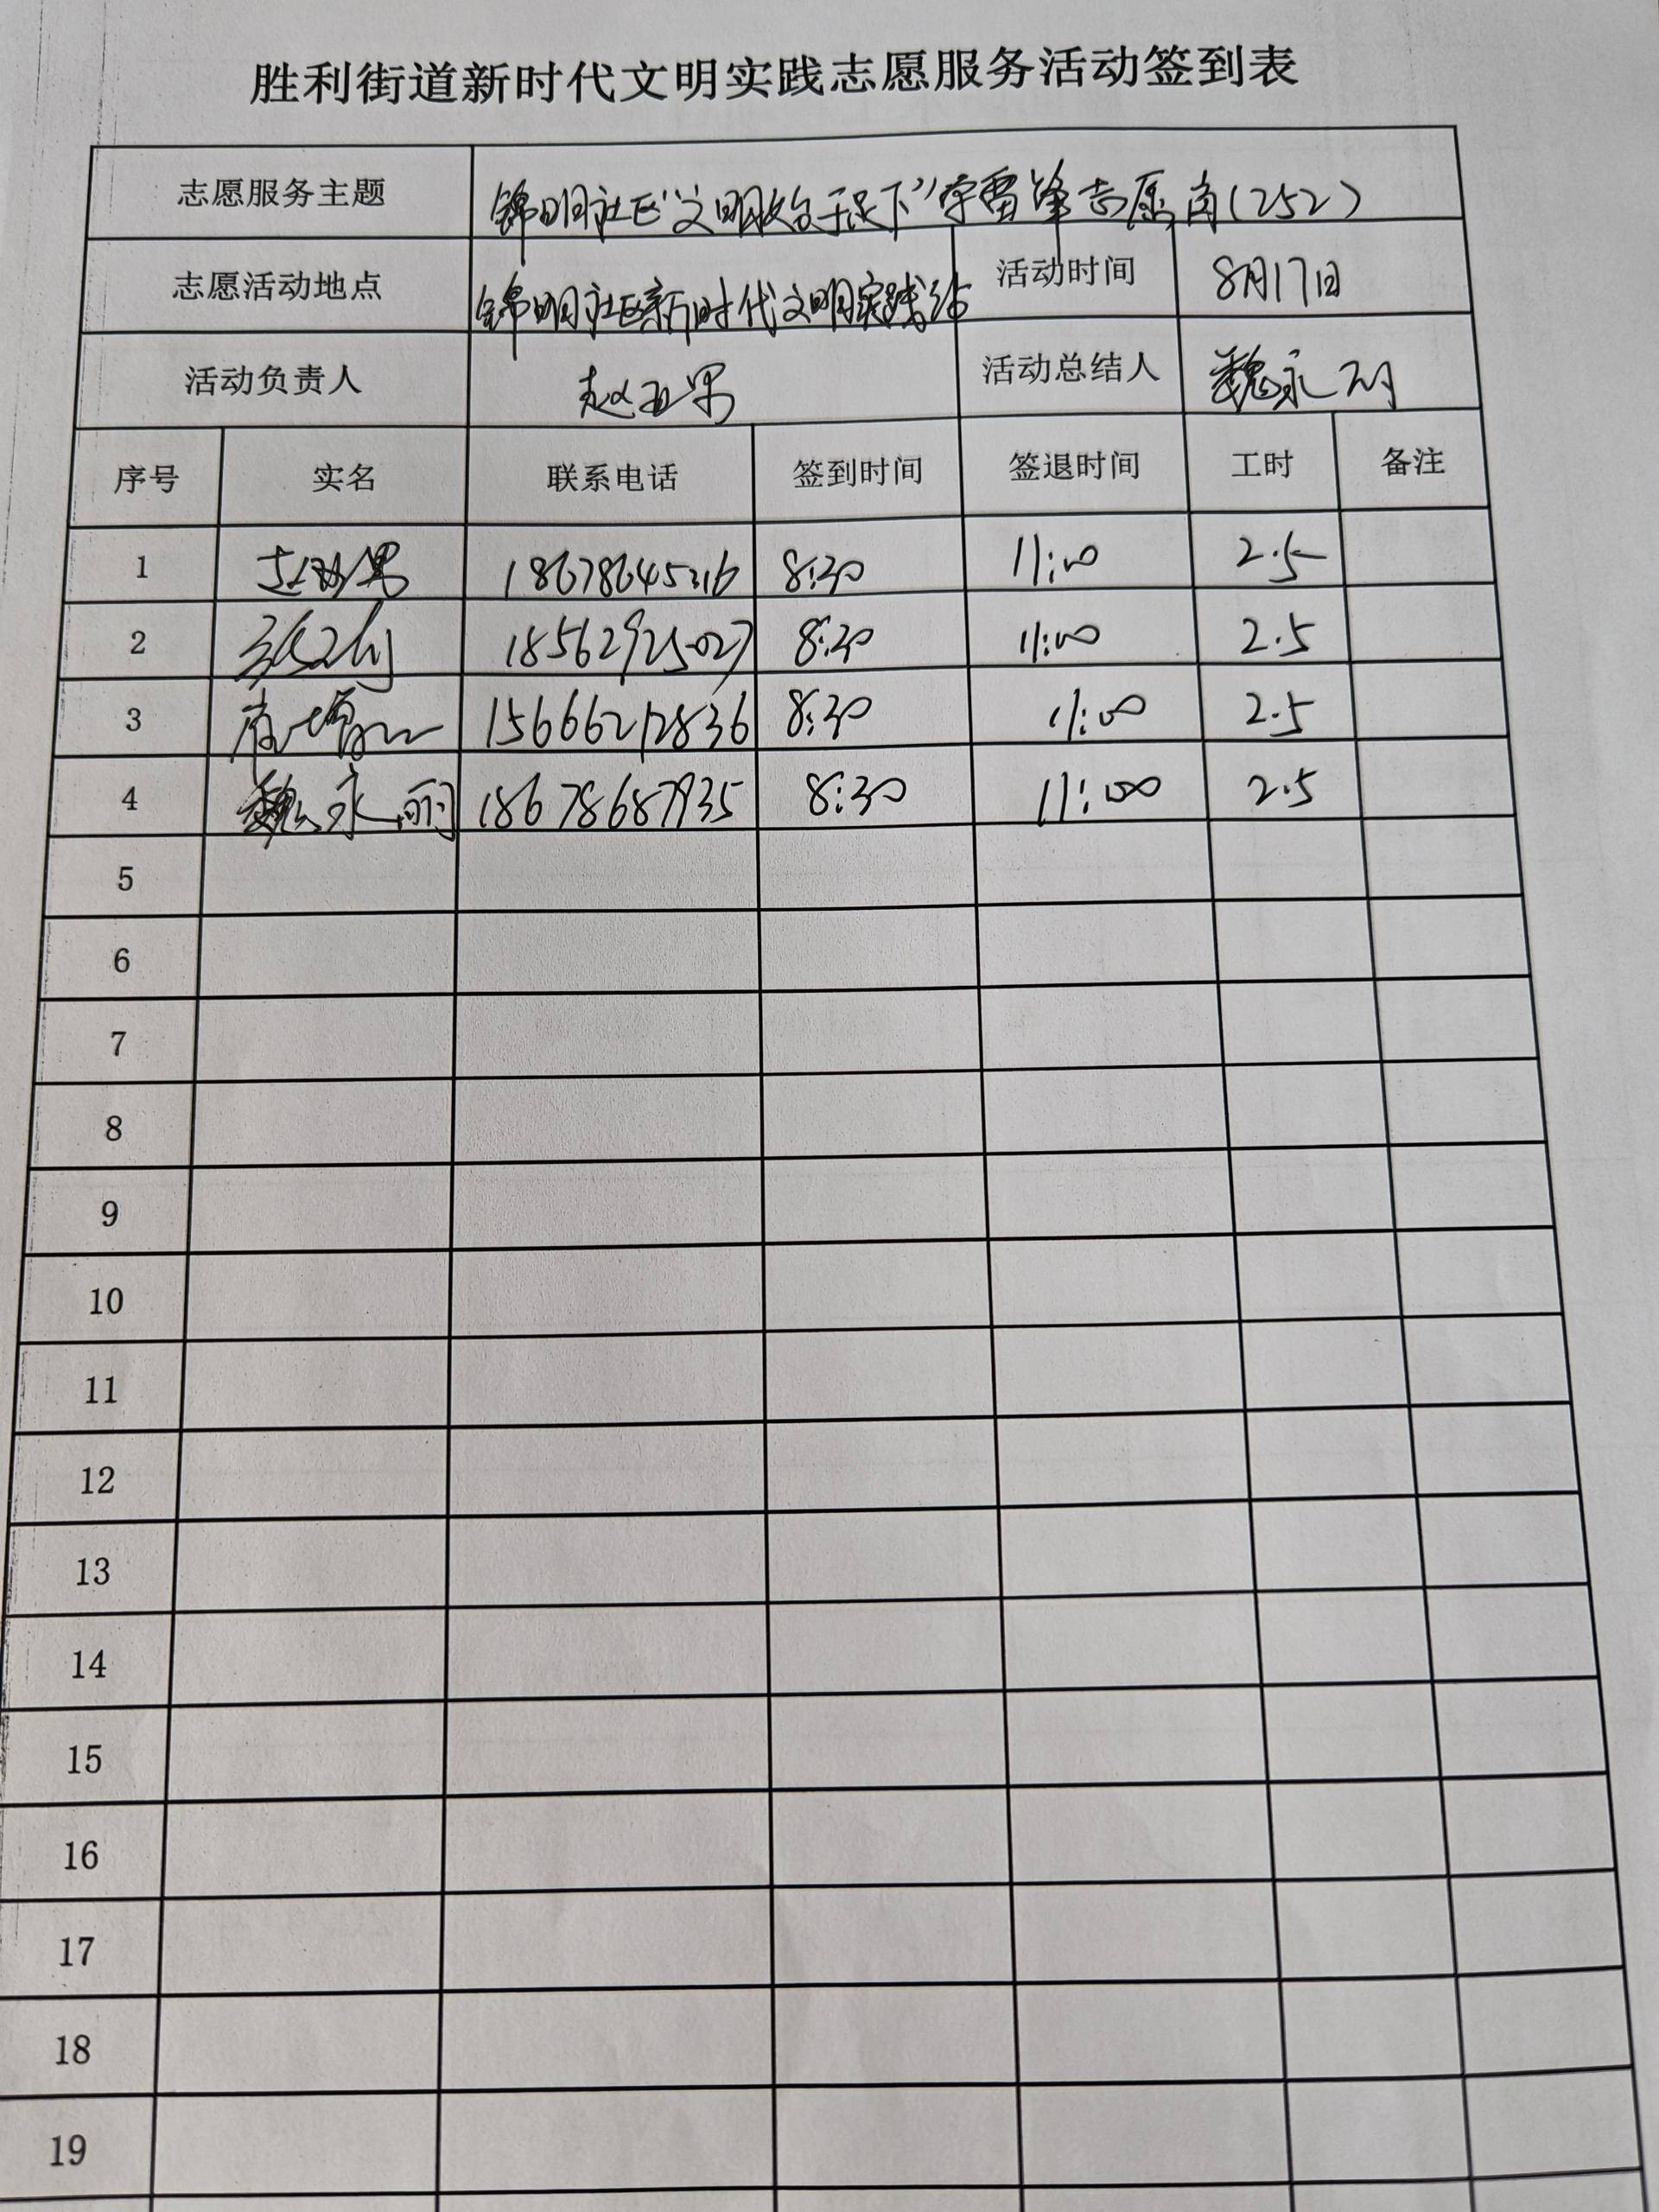 胜利街道新时代文明实践志愿服务活动签到表
志愿服务主题 锦明社区“文明始于足下”学雷锋志愿岗(252)
志愿活动地点 锦明社区新时代文明实践站 活动时间 8月17日
活动负责人 赵 活动总结人 魏永丽
序号 实名 联系电话 签到时间 签退时间 工时 备注
1 8:30 11:00 2.5
2 18562925027 8:30 11:00 2.5
3 15666212836 8:30 11:00 2.5
4 魏永丽 18678687935 8:30 11:00 2.5
5
6
7
8
9
10
11
12
13
14
15
16
17
18
19